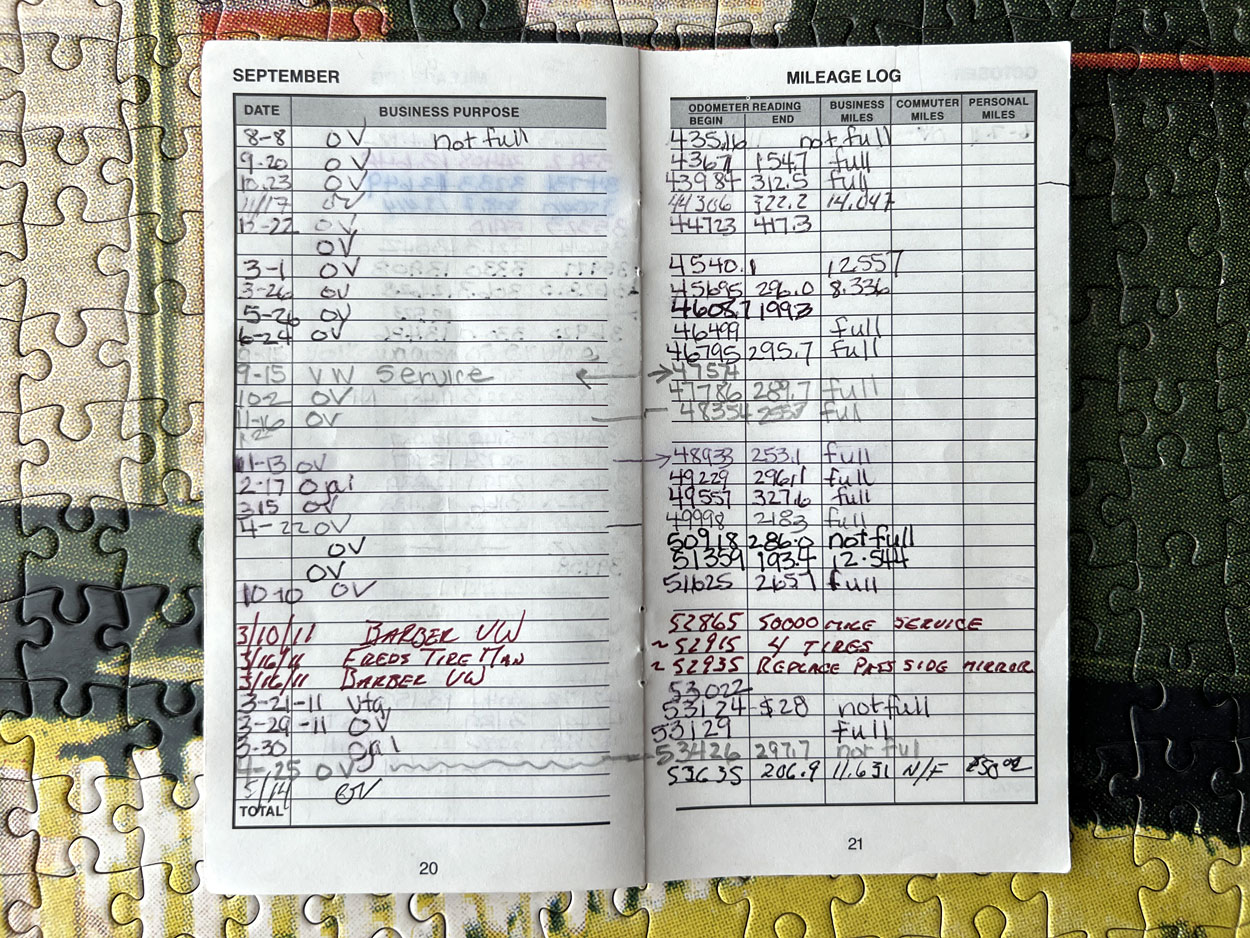 SEPTEMBER MILEAGE LOG
DATE BUSINESS PURPOSE ODOMETER READING BEGIN END BUSINESS MILES COMMUTER MILES PERSONAL MILES
8-8 OV not full 43516 not full
9-20 OV 43671 154.7 full
10.23 OV 43984 312.5 full
11/17 OV 44306 322.2 14.047
12-22 OV 44723 417.3
OV
3-1 OV 4540.1 12.557
3-26 OV 45695 296.0 8.336
5-26 OV 46087 1993
6-24 OV 46499 full
46795 295.7 full
9-15 VW Service 47574
10-2 OV 47786 289.7 full
11-16 OV 48354 full
11-13 OV 48933 253.1 full
2-17 Opal 49229 296.1 full
3.15 OV 49557 327.6 full
4-22 OV 49998 218.3 full
OV 50918 286.0 not full
OV 51359 193.4 12.544
10-10 OV 51625 2657 full
3/10/11 BARBER VW 52865 50000 MILE SERVICE
3/16/11 FREDS TIRE MAN ~52915 4 TIRES
3/16/11 BARBER VW ~52935 REPLACE PASS SIDE MIRROR
53022
3-21-11 Vtg 53124 -$28 not full
3-29-11 OV 53129 full
3-30 opal 53426 297.7 not ful
4-25 OV 53635 206.9 11.631 N/F
5/14 OV
TOTAL
20
21